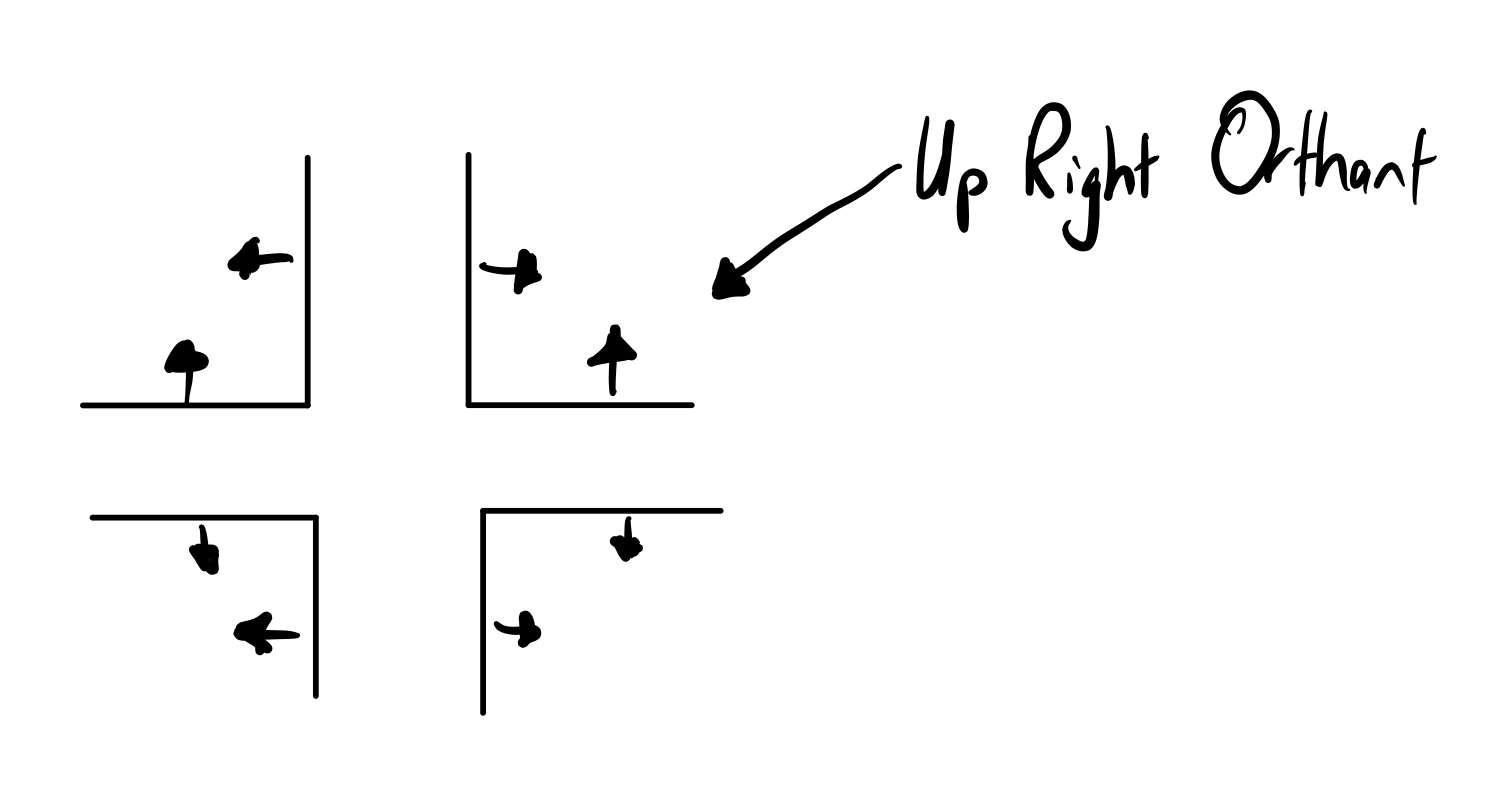 Up Right Orthant